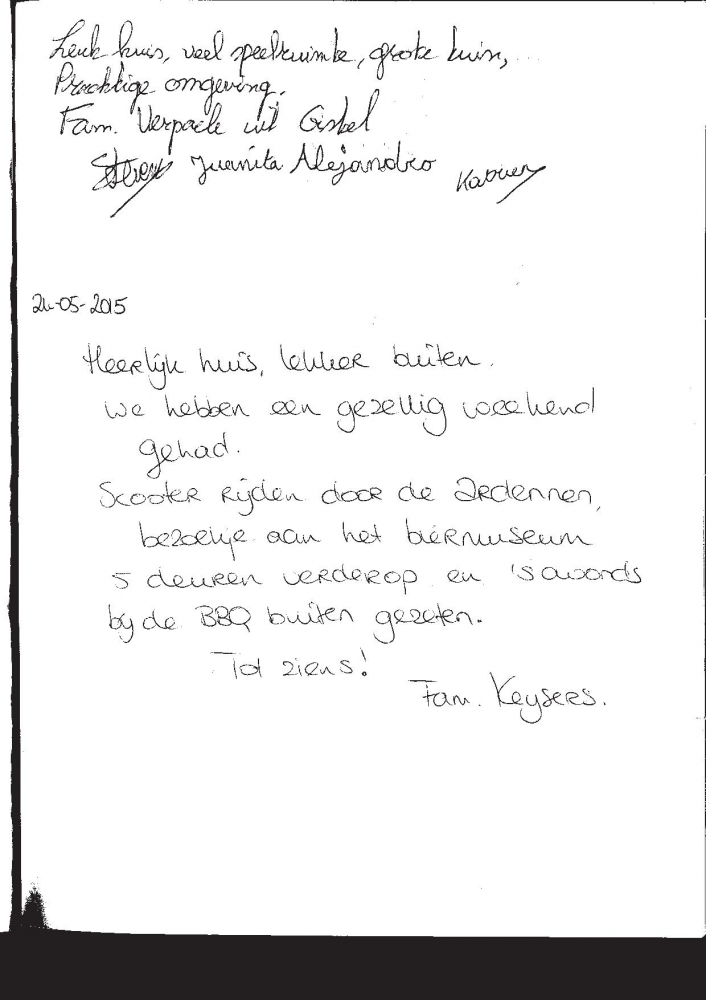 Leuk huis, veel speelruimte, grote tuin,
Prachtige omgeving.
Fam. Verpaele uit
Juanita Alejandro
-05-2015
Heerlijk huis, lekker buiten.
We hebben een gezellig weekend
gehad.
Scooter rijden door de Ardennen,
bezoekje aan het biermuseum
5 deuren verderop en 's avonds
bij de BBQ buiten gezeten.
Tot ziens!
Fam. Keysers.